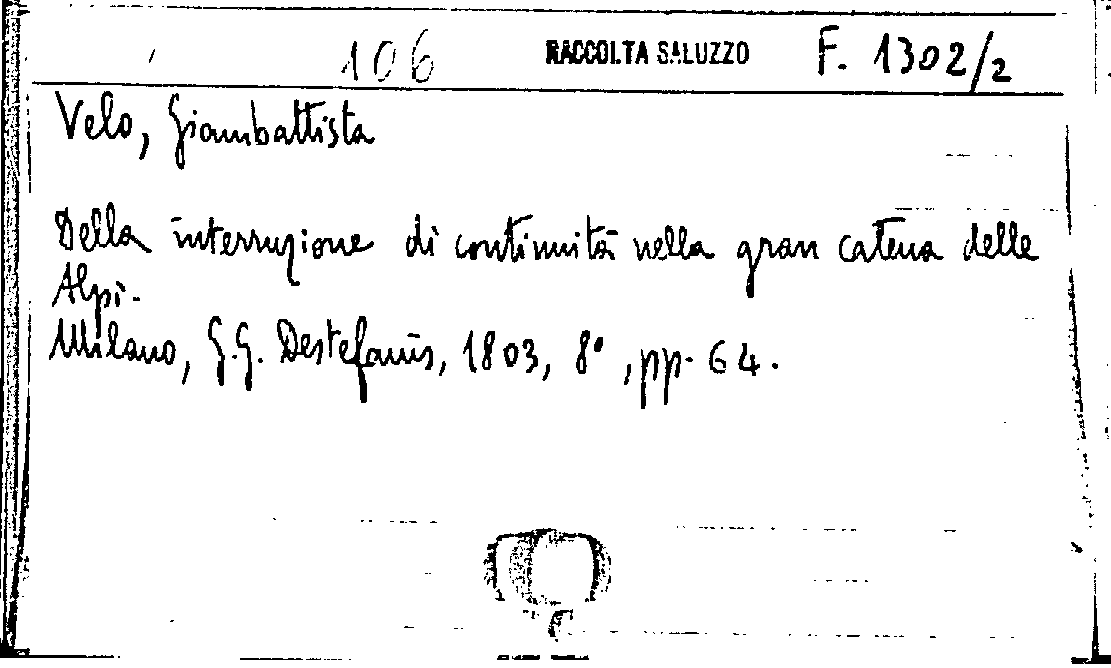 106 RACCOLTA SALUZZO F. 1302/2
Velo, Giambattista
Della interruzione di continuità nella gran catena delle
Alpi.
Milano, G.G. Destefanis, 1803, 8°, pp. 64.